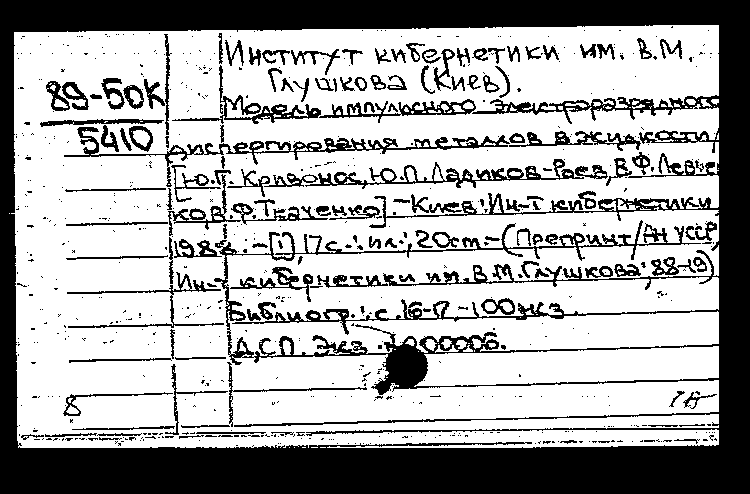 Институт кибернетики им. В.М.
Глушкова (Киев).
89-50К
5410
Модель импульсного электроразрядного
диспергирования металлов в жидкости/
[Ю.Г. Кривонос, Ю.П. Ладиков-Роев, В.Ф. Левчен
ко, В.Ф. Ткаченко].-Киев: Ин-т кибернетики,
1988.-[1], 17с.: ил.; 20см.-(Препринт/АН УССР,
Ин-т кибернетики им. В.М. Глушкова; 88-19)
Библиогр.: с. 16-17.-100экз.
Д,СП. Экз. №000006.
8